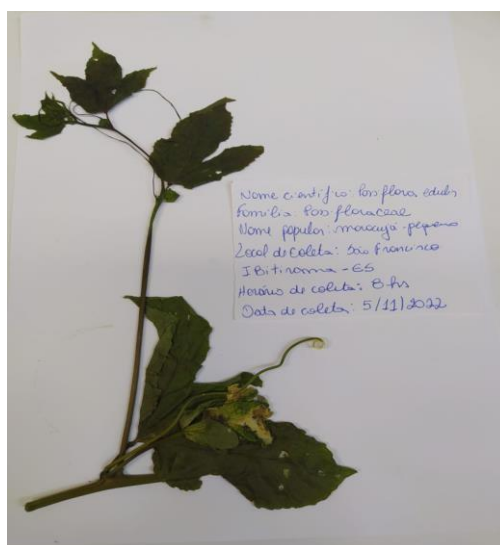 Nome científico: Passiflora edulis
Família: Passifloraceae
Nome popular: maracujá-pequeno
Local de coleta: São Francisco
IBitirama-ES
Horário de coleta: 8 hrs
Data de coleta: 5/11/2022